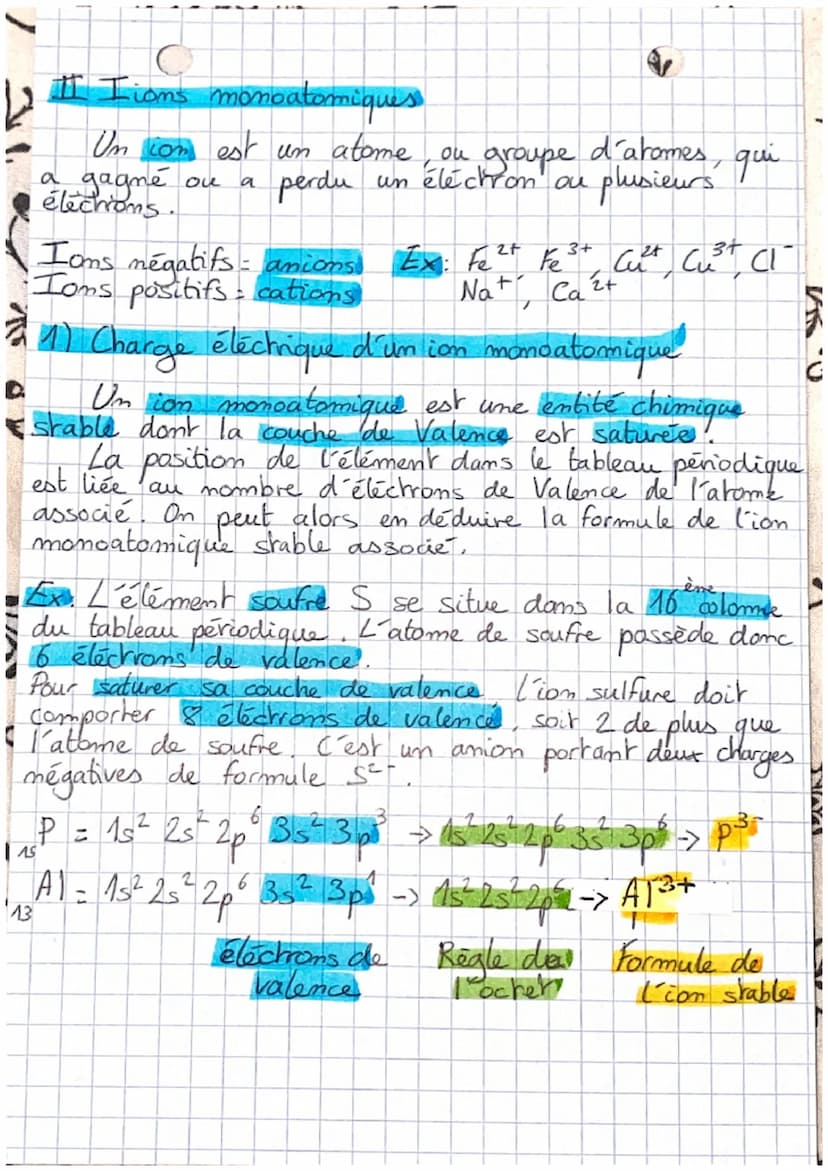 II Iions monoatomiques
Un ion est un atome, ou groupe d'atomes, qui
a gagné ou a perdu un éléctron ou plusieurs
éléctrons.
Ions négatifs = anions Ex: Fe²⁺, Fe³⁺, Cu²⁺, Cu³⁺, Cl⁻
Ions positifs = cations Na⁺, Ca²⁺
1) Charge éléctrique d'un ion monoatomique
Un ion monoatomique est une entité chimique
stable dont la couche de Valence est saturée.
La position de l'élément dans le tableau périodique
est liée au nombre d'éléctrons de Valence de l'atome
associé. On peut alors en déduire la formule de l'ion
monoatomique stable associé.
Ex: L'élément soufre S se situe dans la 16ème colonne
du tableau périodique. L'atome de soufre possède donc
6 éléctrons de valence.
Pour saturer sa couche de valence, l'ion sulfure doit
comporter 8 éléctrons de valence, soit 2 de plus que
l'atome de soufre. C'est un anion portant deux charges
négatives de formule S²⁻.
₁₅P = 1s² 2s² 2p⁶ 3s² 3p³ -> 1s² 2s² 2p⁶ 3s² 3p⁶ -> P³⁻
₁₃Al = 1s² 2s² 2p⁶ 3s² 3p¹ -> 1s² 2s² 2p⁶ -> Al³⁺
éléctrons de Règle de Formule de
valence l'octet l'ion stable